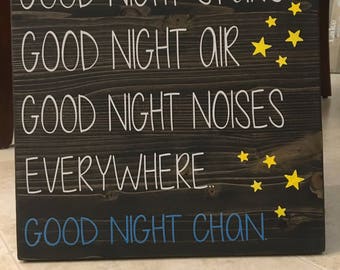 GOOD NIGHT
GOOD NIGHT AIR
GOOD NIGHT NOISES
EVERYWHERE
GOOD NIGHT CHAN.